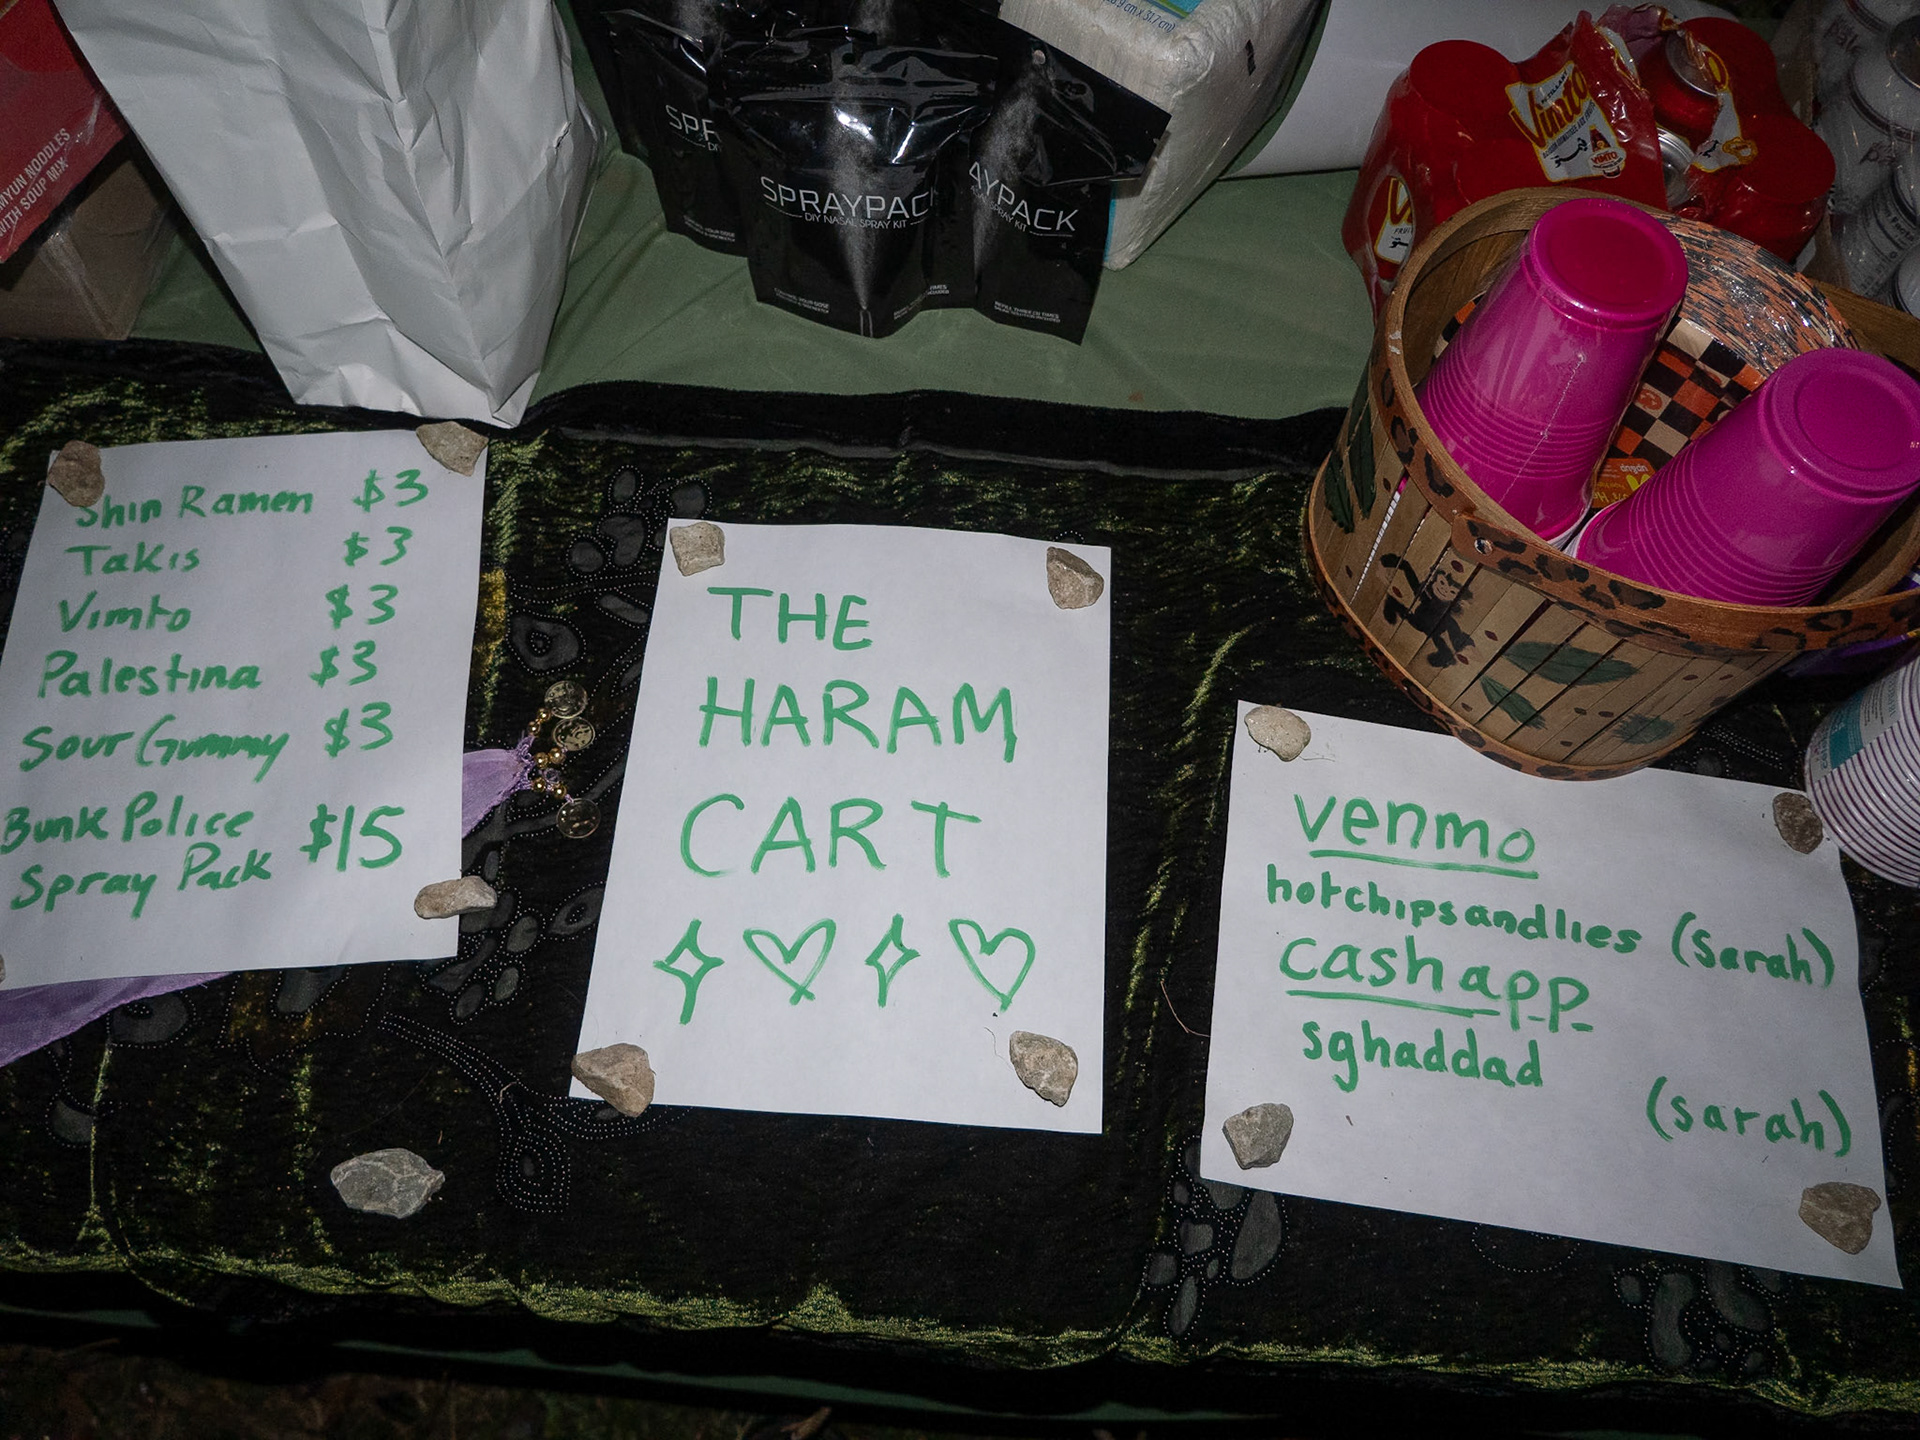 MYUN NOODLES
WITH SOUP MIX
SPRAYPACK
DIY NASAL SPRAY KIT
AYPACK
SPRAY KIT
Vimto
VIMTO
Shin Ramen $3
Takis $3
Vimto $3
Palestina $3
Sour Gummy $3
Bunk Police
Spray Pack $15
THE
HARAM
CART
venmo
hotchipsandlies (sarah)
cashapp
sghaddad
(sarah)